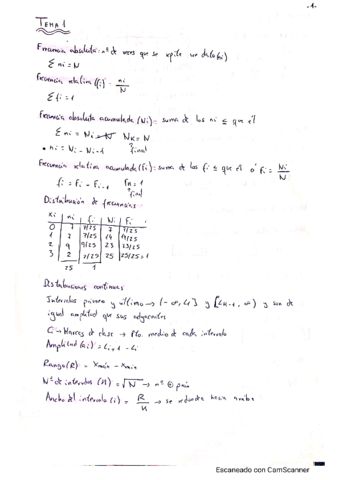 .1.
Tema 1
Frecuencia absoluta: nº de veces que se repite un dato (ni)
Σ ni = N
Frecuencia relativa (fi) = ni/N
Σ fi = 1
Frecuencia absoluta acumulada (Ni) = suma de los ni ≤ que él
Σ ni = Ni = N Nk = N
final
• ni = Ni - Ni-1
Frecuencia relativa acumulada (Fi): suma de los fi ≤ que él o' Fi = Ni/N
fi = Fi - Fi-1 Fn = 1
final
Distribución de frecuencias:
xi ni fi Ni Fi
0 7 7/25 7 7/25
1 7 7/25 14 14/25
2 9 9/25 23 23/25
3 2 2/25 25 25/25=1
25 1
Distribuciones continuas:
Intervalos primero y último → (-∞, L1] y [Lk-1, ∞) y son de
igual amplitud que sus adyacentes
Ci → Marcas de clase → Pto. medio de cada intervalo
Amplitud (ai) = Li+1 - Li
Rango (R) = Xmáx - Xmin
Nº de intervalos (n) = √N → nº
Ancho del intervalo (i) = R/n → se redondea hacia arriba
Escaneado con CamScanner